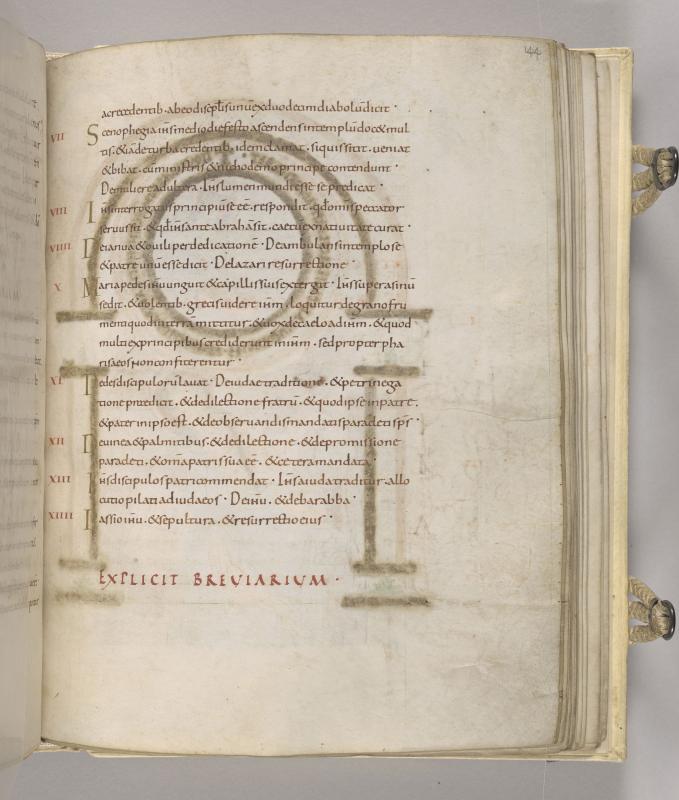 144
acrecedentib· abeodiscplisunūexduodecimdiabolūdicit·
VII Scenophegia ihsmediodiefesto ascendensintemplūdoc&mul
tis·&iadeturbacredentib· idemclamat· siquissitit· ueniat
&bibat· cumministris &nichodemo principe contendunt·
Demuliere adultera· Ihslumenmundi esse se predicat·
VIII Ihsinterrogatusprincipiūse eē· respondit·
seruussit· &qđihsante abrahāsit· caecūexnatiuitate curat·
VIIII Deianua&ouili perdedicationē· Deambulansintemplose
&patre unūessedicit· Delazari resurrectione·
X Mariapedesihūunguit &capillissuisextergit· Ihssuperasinū
sedit· &uolentib· grecisuidere ihm· loquitur degranofru
mentiquodinterrā mittitur· &uoxdecaeloadihm· &quod
multiexprincipibuscrediderunt inihm· sedpropterpha
risaeosnonconfiterentur·
XI Pedesdiscipulorūlauat· Deiudae traditione· &petrinega
tione praedicit· &dedilectione fratrū· &quodipseinpatre·
&paterinipsoest· &deobseruandismandatisparacletisp̄s·
XII Deuinea&palmitibus· &dedilectione· &depromissione
paracleti· &omīapatrissuaeē· &ceteramandata·
XIII Ihsdiscipulospatricommendat· Ihsaiudatraditur· allo
cutiopilatiadiudaeos· Deihu· &debarabba·
XIIII Passioihu· &sepultura· &resurrectioeius·
EXPLICIT BREUIARIUM·